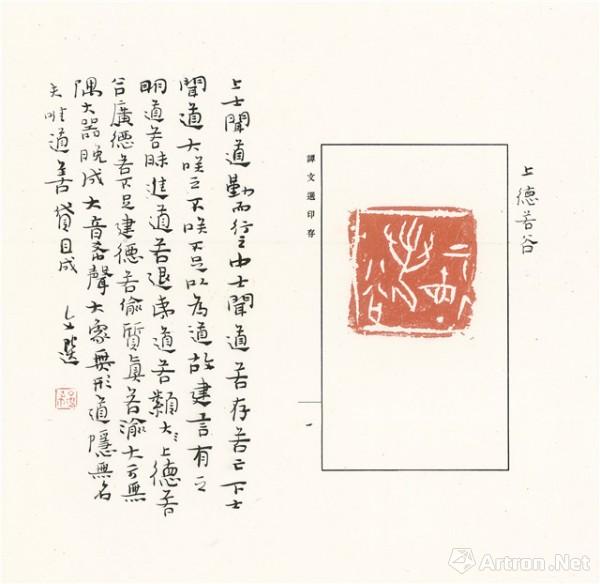 上德若谷
上德若谷
譚文選印存
一
上士聞道勤而行之中士聞道若存若亡下士
聞道大咲之不咲不足以為道故建言有之
明道若昧進道若退夷道若纇大上德若
谷廣德若不足建德若偷質真若渝大方無
隅大器晚成大音希聲大象無形道隱無名
夫唯道善貸且成 文選
Artron.Net